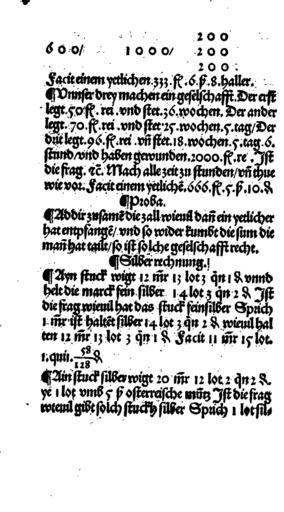 200
600/ 1000/ 200
200
Facit einem yetlichen. 333. fl. 6. ß. 8. haller.
¶ Vnnser drey machen ein geselschafft. Der erst
legt. 50. fl. rei. vnd stet. 36. wochen. Der ander
legt. 70. fl. rei. vnd stet 25. wochen. 5. tag/ Der
drit legt. 96. fl. rei. vn̄ stet. 18. wochen. 5. tag. 6.
stund/ vnd haben gewunden. 2000. fl. re. Ist
die frag. ꝛc. Mach alle zeit zu stunden/ vn̄ thue
wie vor. Facit einem yetlichē. 666. fl. 5. ß. 10. ₰
¶ Proba.
¶ Addir zusamē die zall wieuil dan̄ ein yetlicher
hat entpfangē/ vnd so wider kumbt die sum die
man̄ hat tailt/ so ist solche geselschafft recht.
¶ Silber rechnung.
¶ Ayn stuck wigt 12 mr̄ 13 lot 3 q̄n 1 ₰ vnnd
helt die marck fein silber 14 lot 3 q̄n 2 ₰ Ist
die frag wieuil hat das stuck feinsilber Spuch
1 mr̄ ist haltēt silber 14 lot 3 q̄n 2 ₰ wieuil hal
ten 12 mr̄ 13 lot 3 q̄n 1 ₰ Facit 11 mr̄ 15 lot.
1. quin. 58/128 ₰
¶ Ain stuck silber wigt 20 mr̄ 12 lot 2 q̄n 2 ₰
ye 1 lot vmb 5 ß osterreische mūtz Ist die frag
wieuil gibt solch stuckh silber Spuch 1 lot sil-